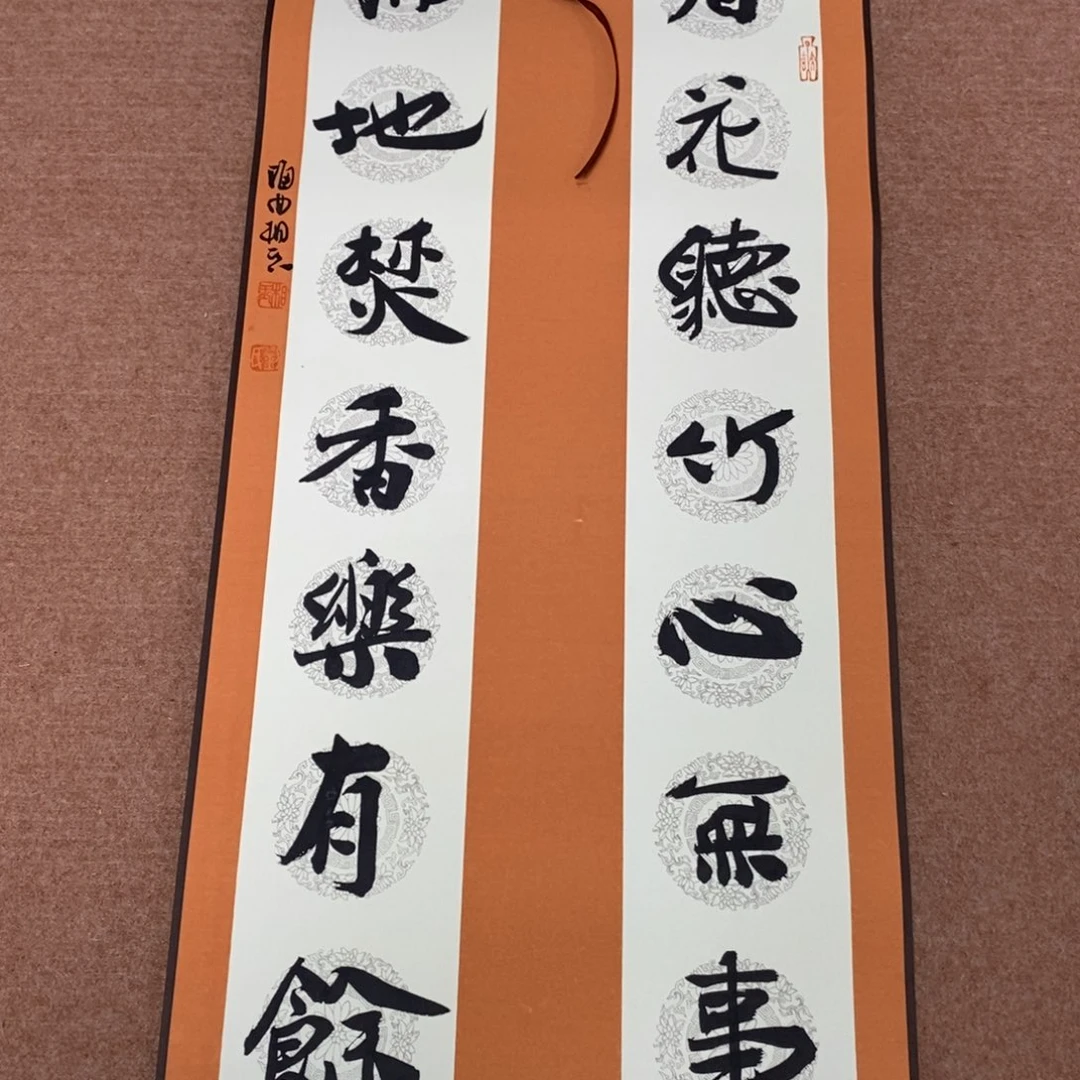 看花聽竹心無事
掃地焚香樂有餘